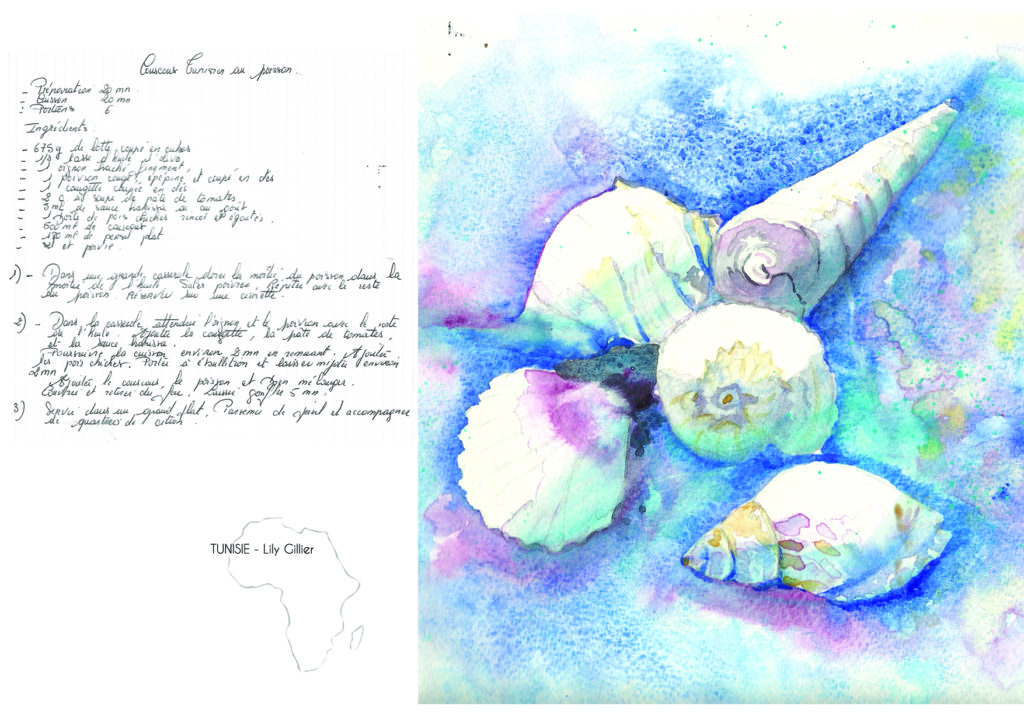 Couscous Tunisien au poisson.
- Préparation 20 mn.
- Cuisson 20 mn
- Portions 6
Ingrédients:
- 675g de lotte coupé en cubes
- 1/3 tasse d'huile d'olive
- 1 oignon haché finement,
- 1 poivron rouge, épépiné et coupé en dés
- 1 courgette coupée en dés
- 2 c à soupe de pâte de tomates.
- 5 ml de sauce harissa ou au goût
- 1 boîte de pois chiches rincés et égoutés.
- 500 ml de couscous
- 180 ml de persil plat
- sel et poivre.
1) - Dans une grande casserole dorer la moitié du poisson dans la
moitié de l'huile. Saler poivrer. Répéter avec le reste
du poisson. Réserver sur une assiette.
2) - Dans la casserole, attendrir l'oignon et le poivron avec le reste
de l'huile. Ajouter la courgette, la pâte de tomates,
et la sauce harissa.
Poursuivre la cuisson environ 2 mn en remuant. Ajouter
les pois chiches. Porter à ébullition et laisser mijoter environ
2 mn
Ajouter le couscous, le poisson et bien mélanger.
Couvrir et retirer du feu. Laisser gonfler 5 mn.
3) Servir dans un grand plat. Parsemer de persil et accompagner
de quartiers de citron.
TUNISIE - Lily Gillier